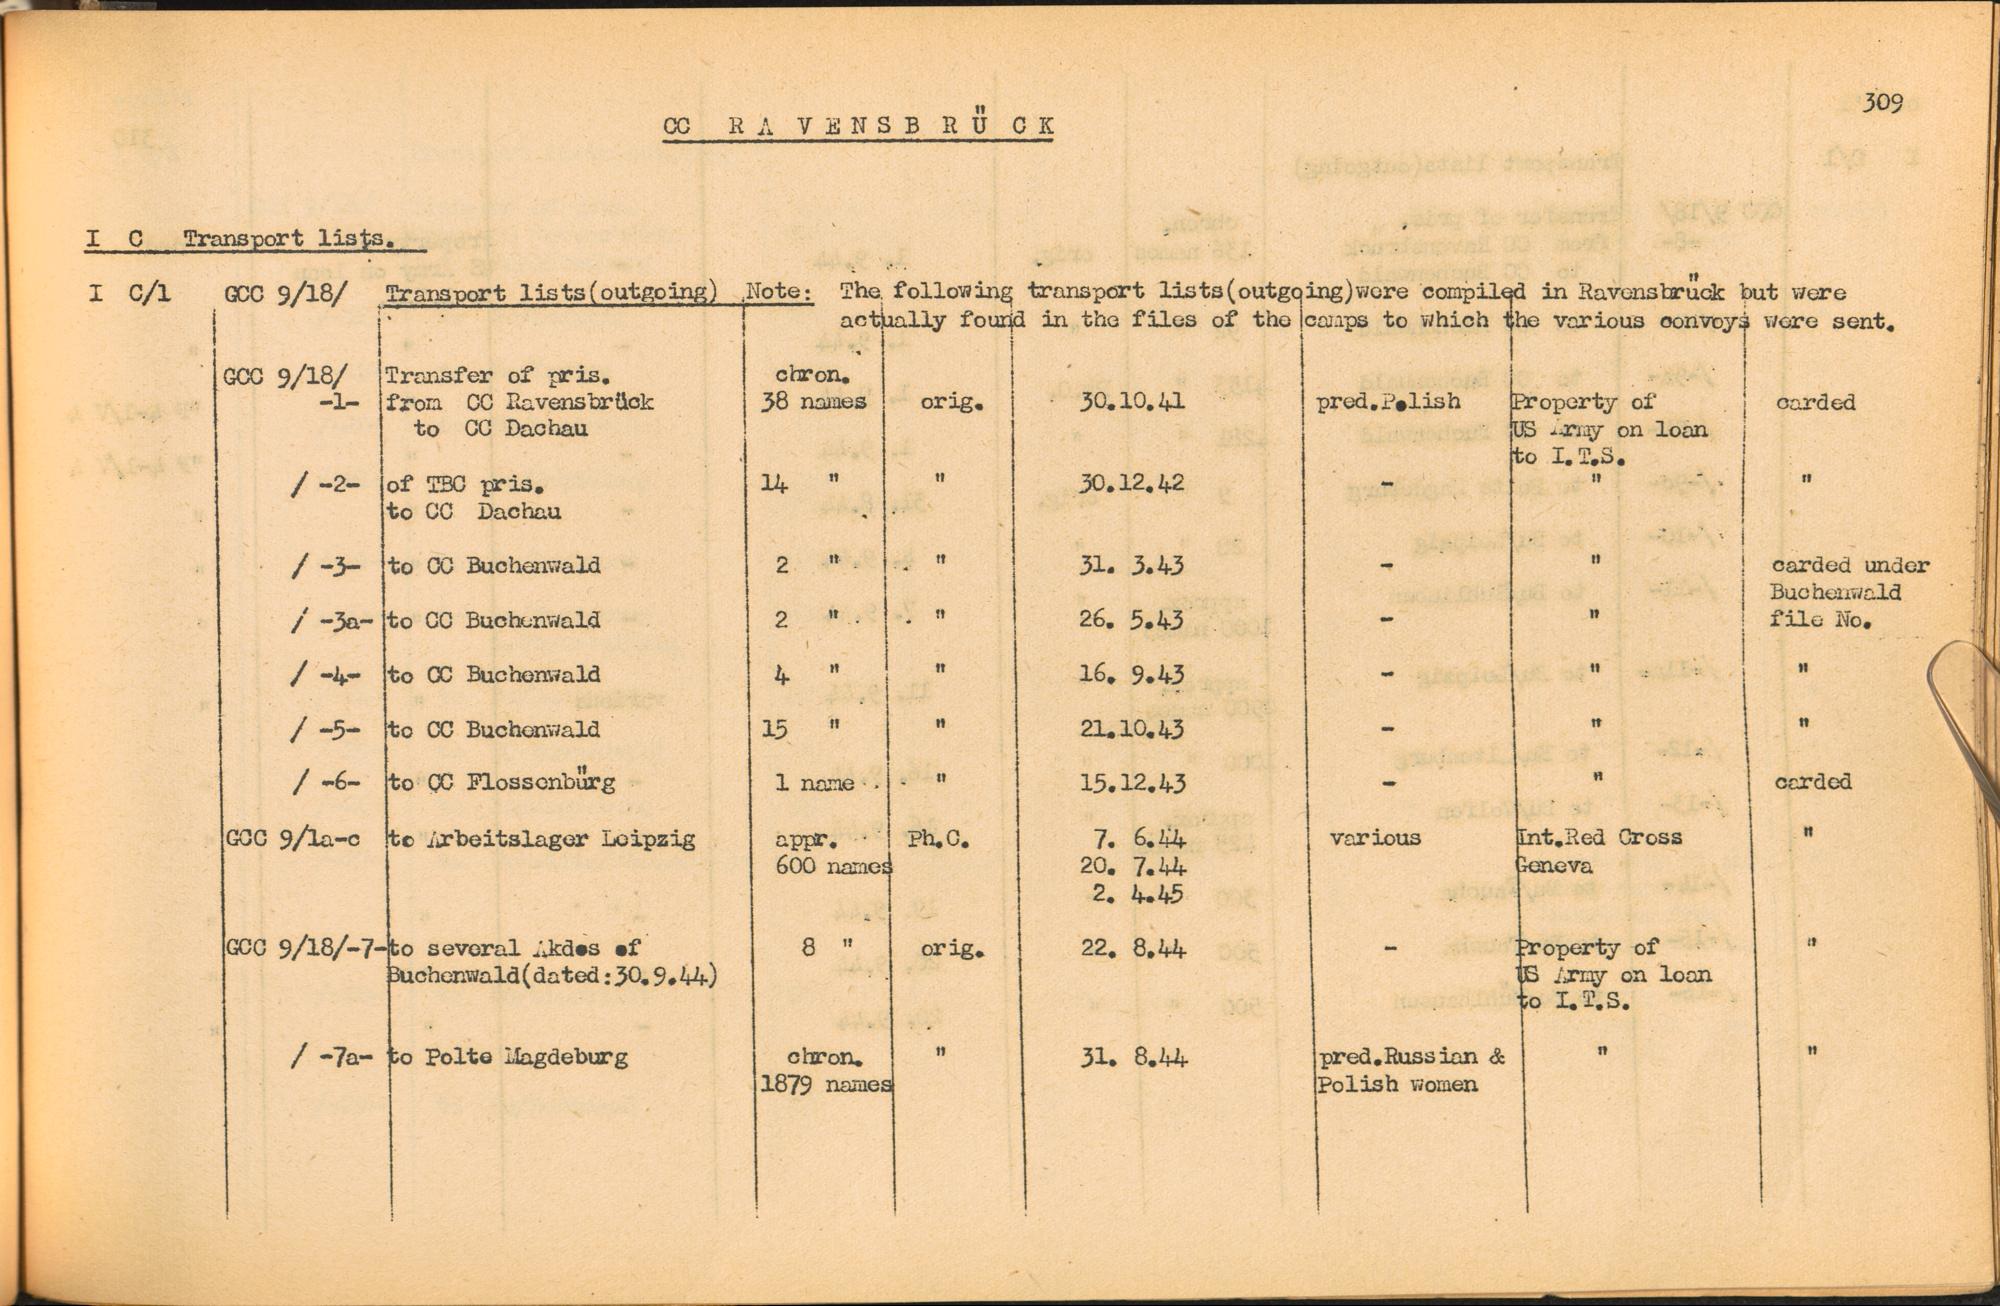 309
CC RAVENSBRÜCK
I C Transport lists.
I C/1 GCC 9/18/ Transport lists(outgoing) Note: The following transport lists(outgoing)were compiled in Ravensbrück but were
actually found in the files of the camps to which the various convoys were sent.
GCC 9/18/ Transfer of pris. chron.
-1- from CC Ravensbrück 38 names orig. 30.10.41 pred.Polish Property of carded
to CC Dachau US Army on loan
to I.T.S.
/ -2- of TBC pris. 14 " " 30.12.42 - " "
to CC Dachau
/ -3- to CC Buchenwald 2 " " 31. 3.43 - " carded under
Buchenwald
/ -3a- to CC Buchenwald 2 " " 26. 5.43 - " file No.
/ -4- to CC Buchenwald 4 " " 16. 9.43 - " "
/ -5- to CC Buchenwald 15 " " 21.10.43 - " "
/ -6- to CC Flossenbürg 1 name " 15.12.43 - " carded
GCC 9/1a-c to Arbeitslager Leipzig appr. Ph.C. 7. 6.44 various Int.Red Cross "
600 names 20. 7.44 Geneva
2. 4.45
GCC 9/18/-7- to several Akdos of 8 " orig. 22. 8.44 - Property of "
Buchenwald(dated:30.9.44) US Army on loan
to I.T.S.
/ -7a- to Polte Magdeburg chron. " 31. 8.44 pred.Russian & " "
1879 names Polish women